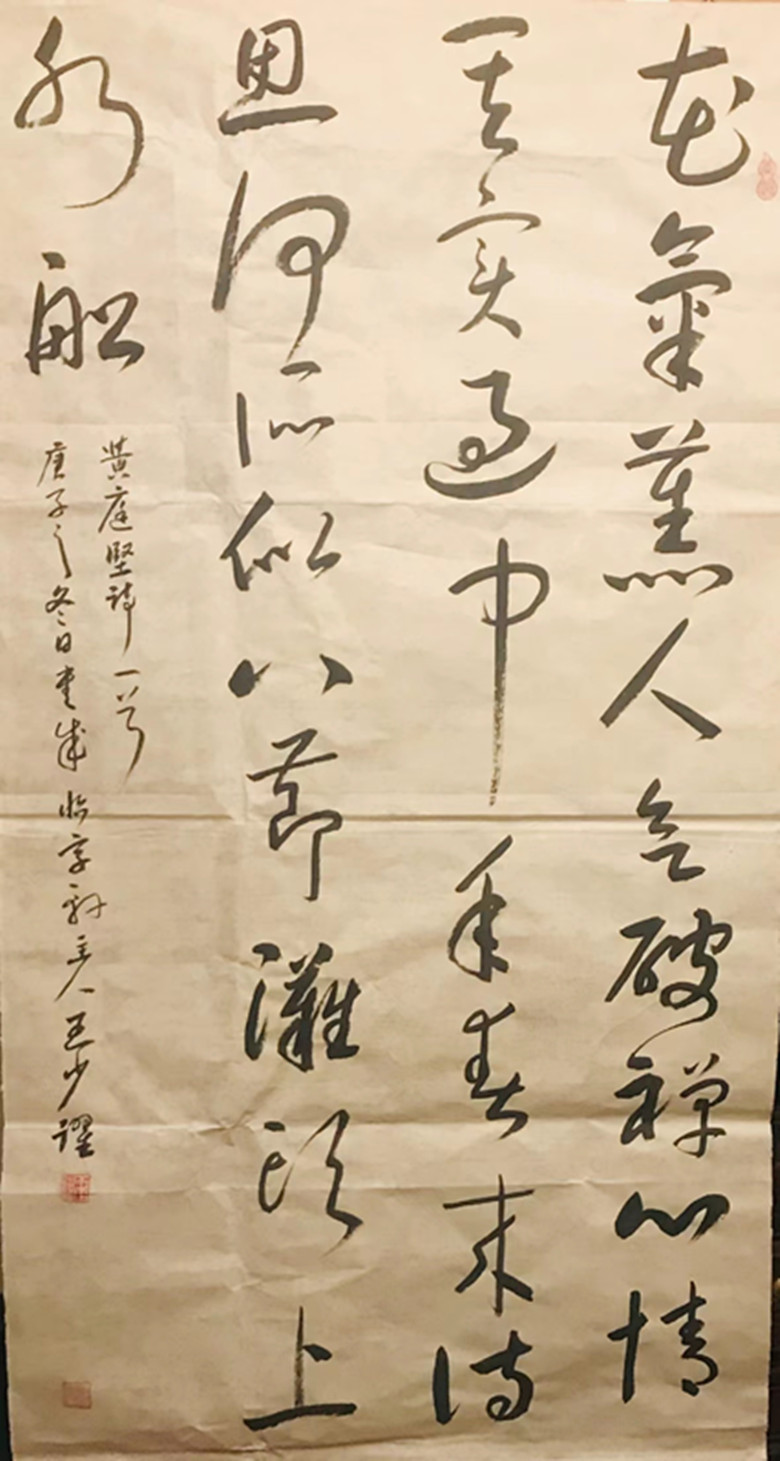 花氣薰人欲破禪心情
其實過中年春來詩
思何所似八節灘頭上
水船
黄庭堅詩一首
庚子之冬日書成 主人王少